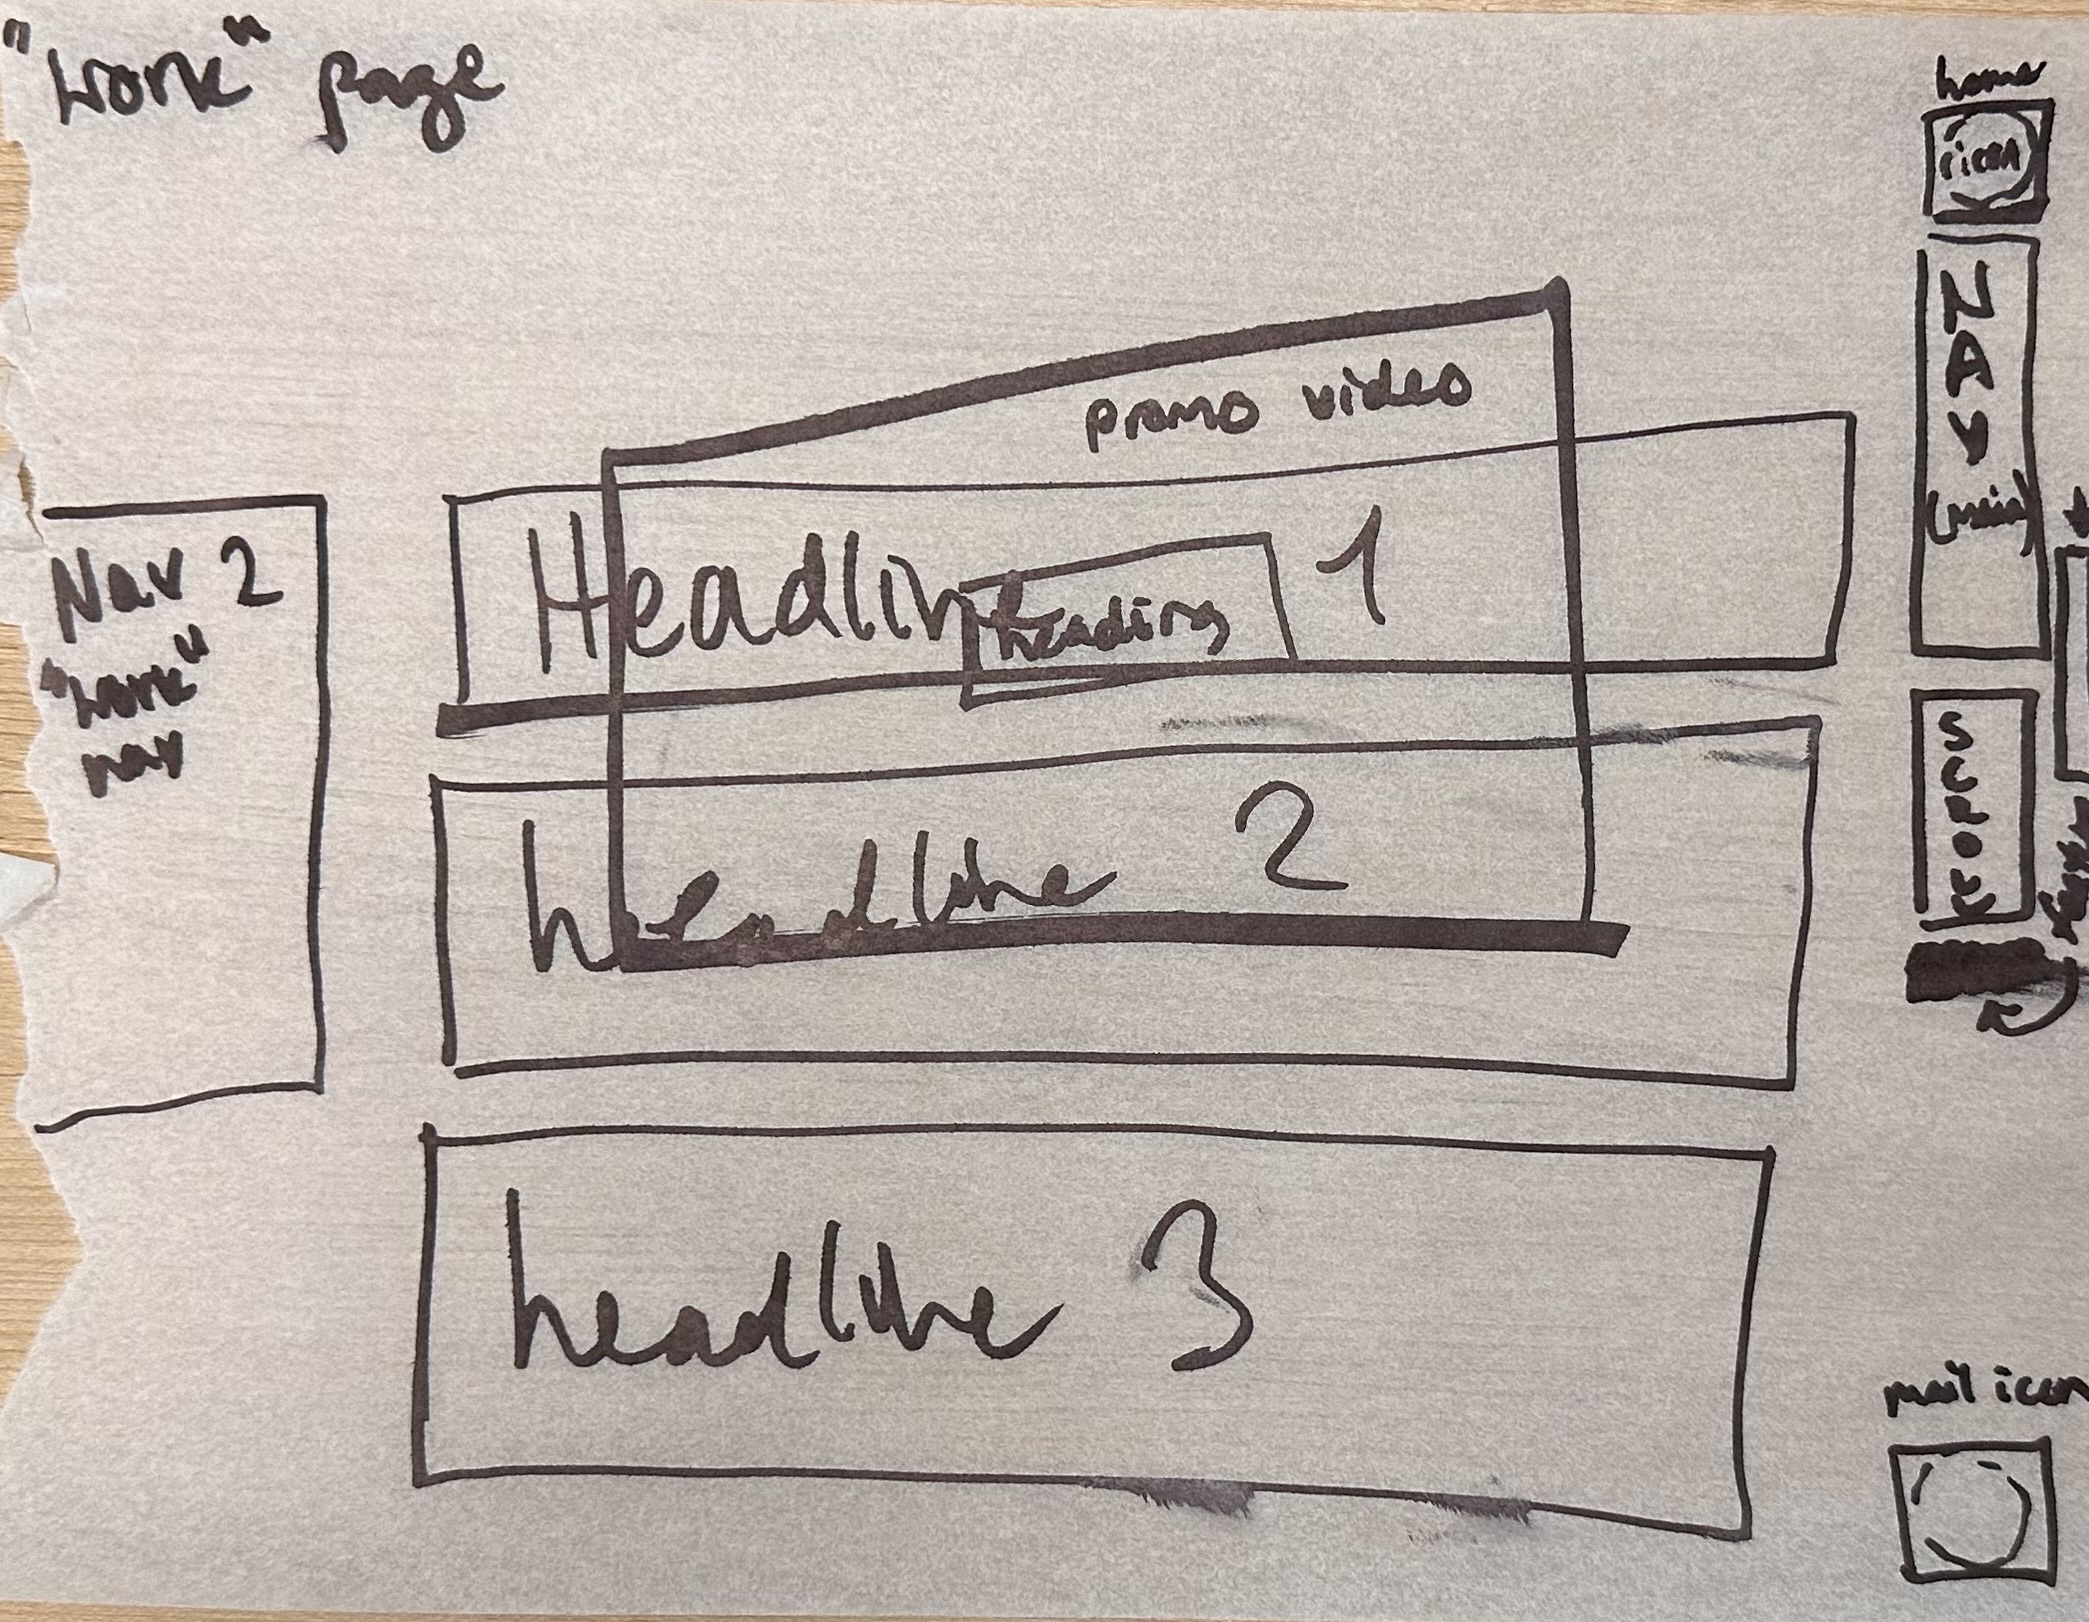 "Work" page
home
icon
NAV
(main)
promo video
Headline 1
heading
Nav 2
"work"
nav
headline 2
headline 3
mail icon